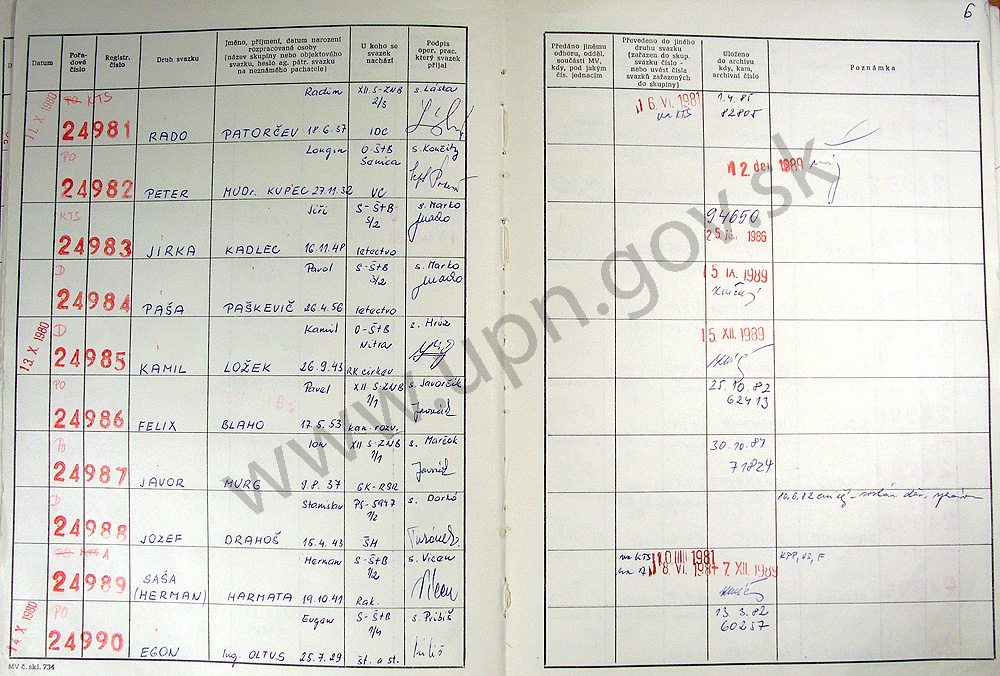 6
Datum
Pořadové číslo
Registr. číslo
Druh svazku
Jméno, příjmení, datum narození rozpracované osoby (název skupiny nebo objektového svazku, heslo ag. pátr. svazku na neznámého pachatele)
U koho se svazek nachází
Podpis oper. prac. který svazek přijal
Předáno jinému odboru, odděl. součásti MV, kdy, pod jakým čís. jednacím
Převedeno do jiného druhu svazku (zařazen do skup. svazku číslo - nebo uvést čísla svazků zařazených do skupiny)
Uloženo do archivu kdy, kam, archivní číslo
Poznámka
11. X. 1980
PO KTS
Radim
XII S-ZNB
s. Láska
16. VI. 1981
1.4.85
24981
2/3
na KTS
82805
RADO
PATORČEV 18.6.57
IDC
PO
Longin
O-ŠtB
s. Končity
Senica
12. dec. 1989
24982
PETER
MUDr. KUPEC 27.11.32
VC
KTS
Jiří
S-ŠtB
s. Marko
5/2
94650
24983
25. 1986
JIRKA
KADLEC 16.11.48
letectvo
D
Pavol
S-ŠtB
s. Marko
15. IX. 1989
24984
5/2
PAŠA
PAŠKEVIČ 26.4.56
letectvo
13. X. 1980
D
Kamil
O-ŠtB
s. Hrúz
15. XII. 1989
24985
Nitra
KAMIL
LOŽEK 26.9.43
RK cirkev
PO
Pavel
XII S-ZNB
s. Javorčík
25.10.82
24986
1/1
62413
FELIX
BLAHO 17.5.53
kan. rozv.
PO
Ion
XII S-ZNB
s. Marčok
30.10.84
24987
1/1
71824
JAVOR
MURG 9.8.37
GK-RSR
Stanislav
PS-5947
s. Darkó
24988
1/2
JOZEF
DRAHOŠ 15.4.43
ŠH
PO KTS A
Herman
S-ŠtB
s. Vicen
na KTS 10 III 1981
KPP, VS, F
24989
1/2
na A 8. VI. 1984
7. XII. 1989
SAŠA (HERMAN)
HARMATA 19.10.41
Rak.
14. X. 1980
PO
Eugen
S-ŠtB
s. Pribiš
13.3.82
24990
1/4
60257
EGON
Ing. OLTUS 25.7.29
št. a st.
MV č. skl. 734
www.upn.gov.sk